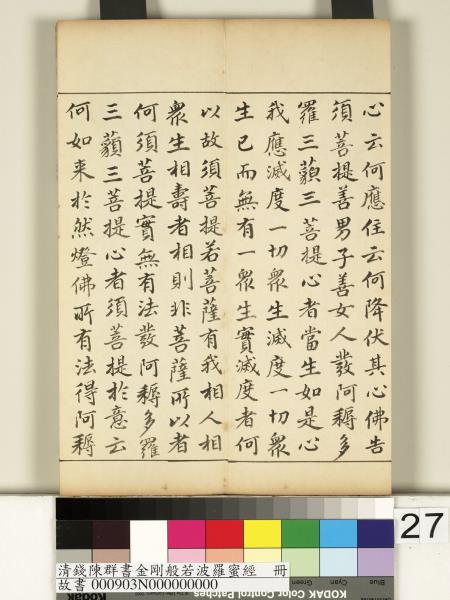 心云何應住云何降伏其心佛告
須菩提善男子善女人發阿耨多
羅三藐三菩提心者當生如是心
我應滅度一切眾生滅度一切眾
生已而無有一眾生實滅度者何
以故須菩提若菩薩有我相人相
眾生相壽者相則非菩薩所以者
何須菩提實無有法發阿耨多羅
三藐三菩提心者須菩提於意云
何如來於然燈佛所有法得阿耨
27
Blue
Cyan
Green
清錢陳群書金剛般若波羅蜜經 冊
故書 000903N000000000
KODAK Color Control Patches